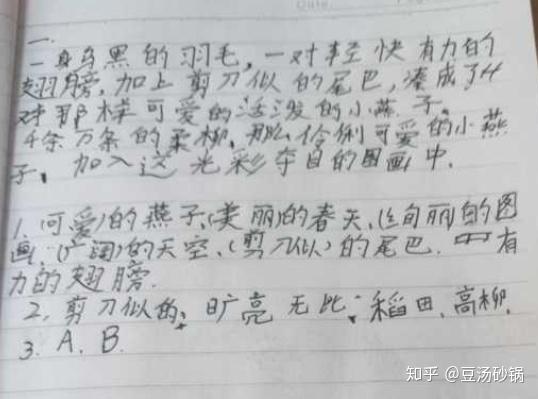 一.
一身乌黑的羽毛,一对轻快有力的
翅膀,加上剪刀似的尾巴,凑成了
那样可爱的活泼的小燕子。
千条万条的柔柳,那伶俐可爱的小燕
子,加入这光彩夺目的图画中.
1.(可爱)的燕子、(美丽)的春天、()的图
画、(广阔)的天空、(剪刀似)的尾巴.有
力的翅膀.
2,剪刀似的;旷亮无比;稻田、高柳.
3.A.B.
知乎 @豆汤砂锅